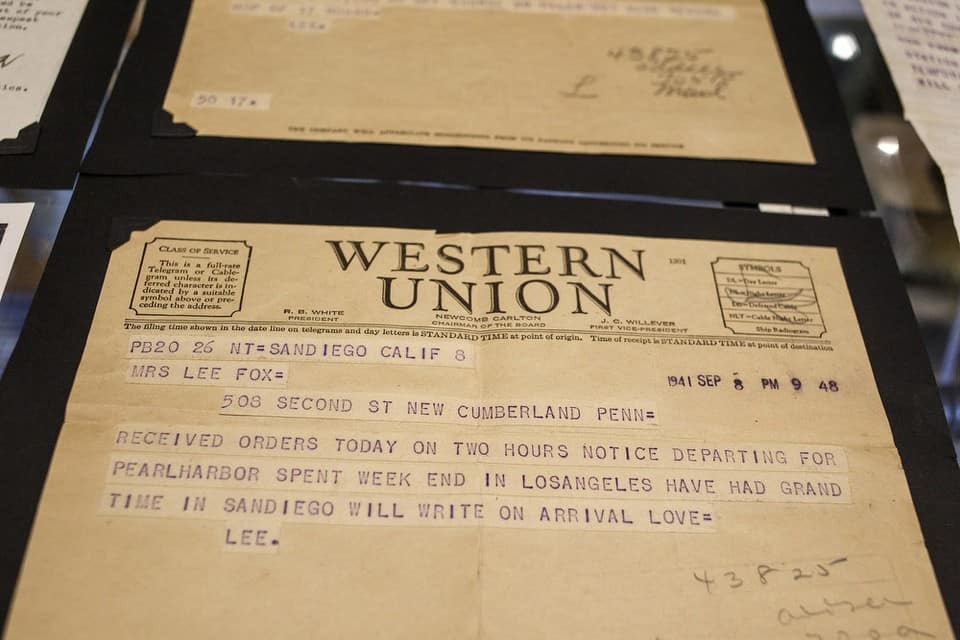 LEE.
43825
mail
50 17.
CLASS OF SERVICE
This is a full-rate
Telegram or Cable-
gram unless its de-
ferred character is in-
dicated by a suitable
symbol above or pre-
ceding the address.
WESTERN
UNION
1201
R. B. WHITE
PRESIDENT
NEWCOMB CARLTON
CHAIRMAN OF THE BOARD
J. C. WILLEVER
FIRST VICE-PRESIDENT
SYMBOLS
DL=Day Letter
NL=Night Letter
LC=Deferred Cable
NLT=Cable Night Letter
Ship Radiogram
The filing time shown in the date line on telegrams and day letters is STANDARD TIME at point of origin. Time of receipt is STANDARD TIME at point of destination
PB20 26 NT=SANDIEGO CALIF 8
1941 SEP 8 PM 9 48
MRS LEE FOX=
508 SECOND ST NEW CUMBERLAND PENN=
RECEIVED ORDERS TODAY ON TWO HOURS NOTICE DEPARTING FOR
PEARLHARBOR SPENT WEEK END IN LOSANGELES HAVE HAD GRAND
TIME IN SANDIEGO WILL WRITE ON ARRIVAL LOVE=
LEE.
43825